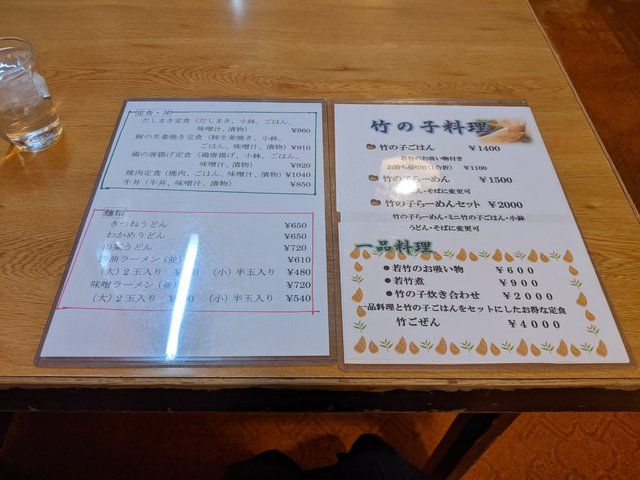 定食・丼
だしまき定食(だしまき、小鉢、ごはん、
味噌汁、漬物) ¥960
豚の生姜焼き定食(豚生姜焼き、小鉢、
ごはん、味噌汁、漬物) ¥910
鶏の唐揚げ定食(鶏唐揚げ、小鉢、ごはん、
味噌汁、漬物) ¥920
焼肉定食(焼肉、ごはん、味噌汁、漬物) ¥1040
牛丼(牛丼、味噌汁、漬物) ¥850
麺類
きつねうどん ¥650
わかめうどん ¥650
山菜うどん ¥720
油ラーメン(並) ¥610
(大)2玉入り (小)半玉入り ¥480
味噌ラーメン(並) ¥720
(大)2玉入り (小)半玉入り ¥540
竹の子料理
竹の子ごはん ¥1400
若竹のお吸い物付き
お持ち帰り用(1合折) ¥1100
竹の子らーめん ¥1500
・そばに変更可
竹の子らーめんセット ¥2000
竹の子らーめん・ミニ竹の子ごはん・小鉢
うどん・そばに変更可
一品料理
●若竹のお吸い物 ¥600
●若竹煮 ¥900
●竹の子炊き合わせ ¥2000
一品料理と竹の子ごはんをセットにしたお得な定食
竹ごぜん ¥4000